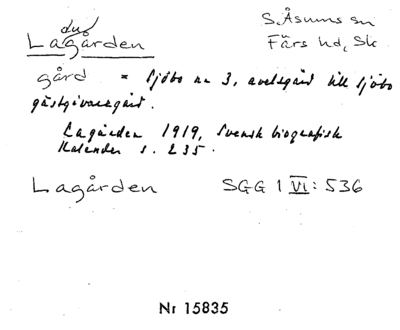 du
Lagården
S. Åsums sn
Färs hd, Sk
gård = Sjöbo nr 3, avelsgård till Sjöbo
gästgivaregård.
Lagården 1919, Svensk biografisk
Kalender s. 235.
Lagården SGG 1 VI: 536
Nr 15835